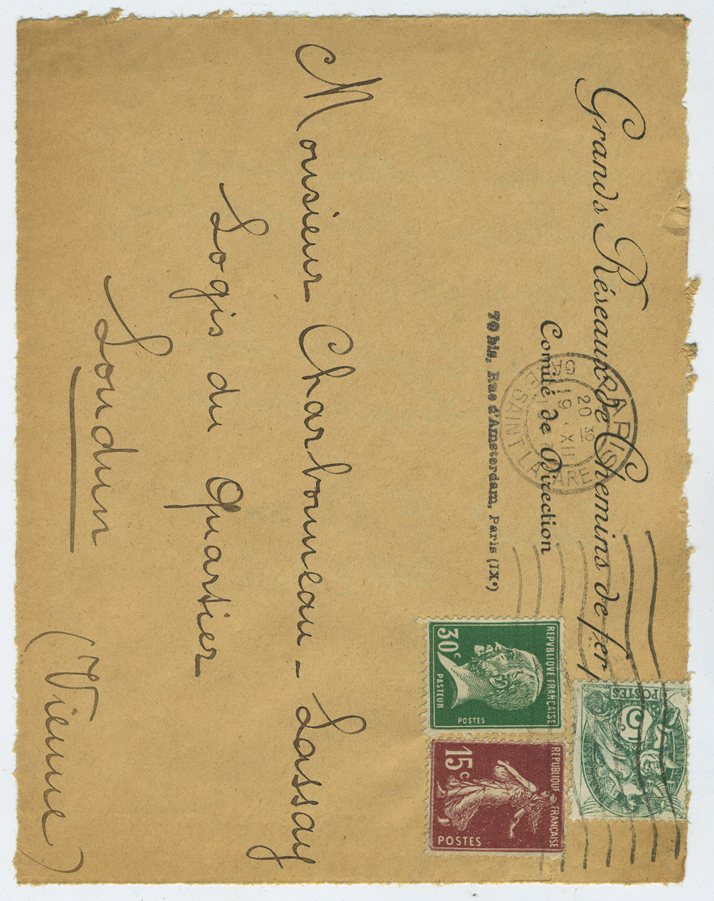 Grands Réseaux de Chemins de fer
Comité de Direction
70 bis, Rue d'Amsterdam, Paris (IXe)
PARIS
20 30
19 · XII
GARE SAINT LAZARE
REPVBLIQVE FRANÇAISE
30c
PASTEUR
POSTES
REPUBLIQUE FRANÇAISE
15c
POSTES
POSTES
5
Monsieur Charbonneau-Lassay
Logis du Quartier
Loudun
(Vienne)